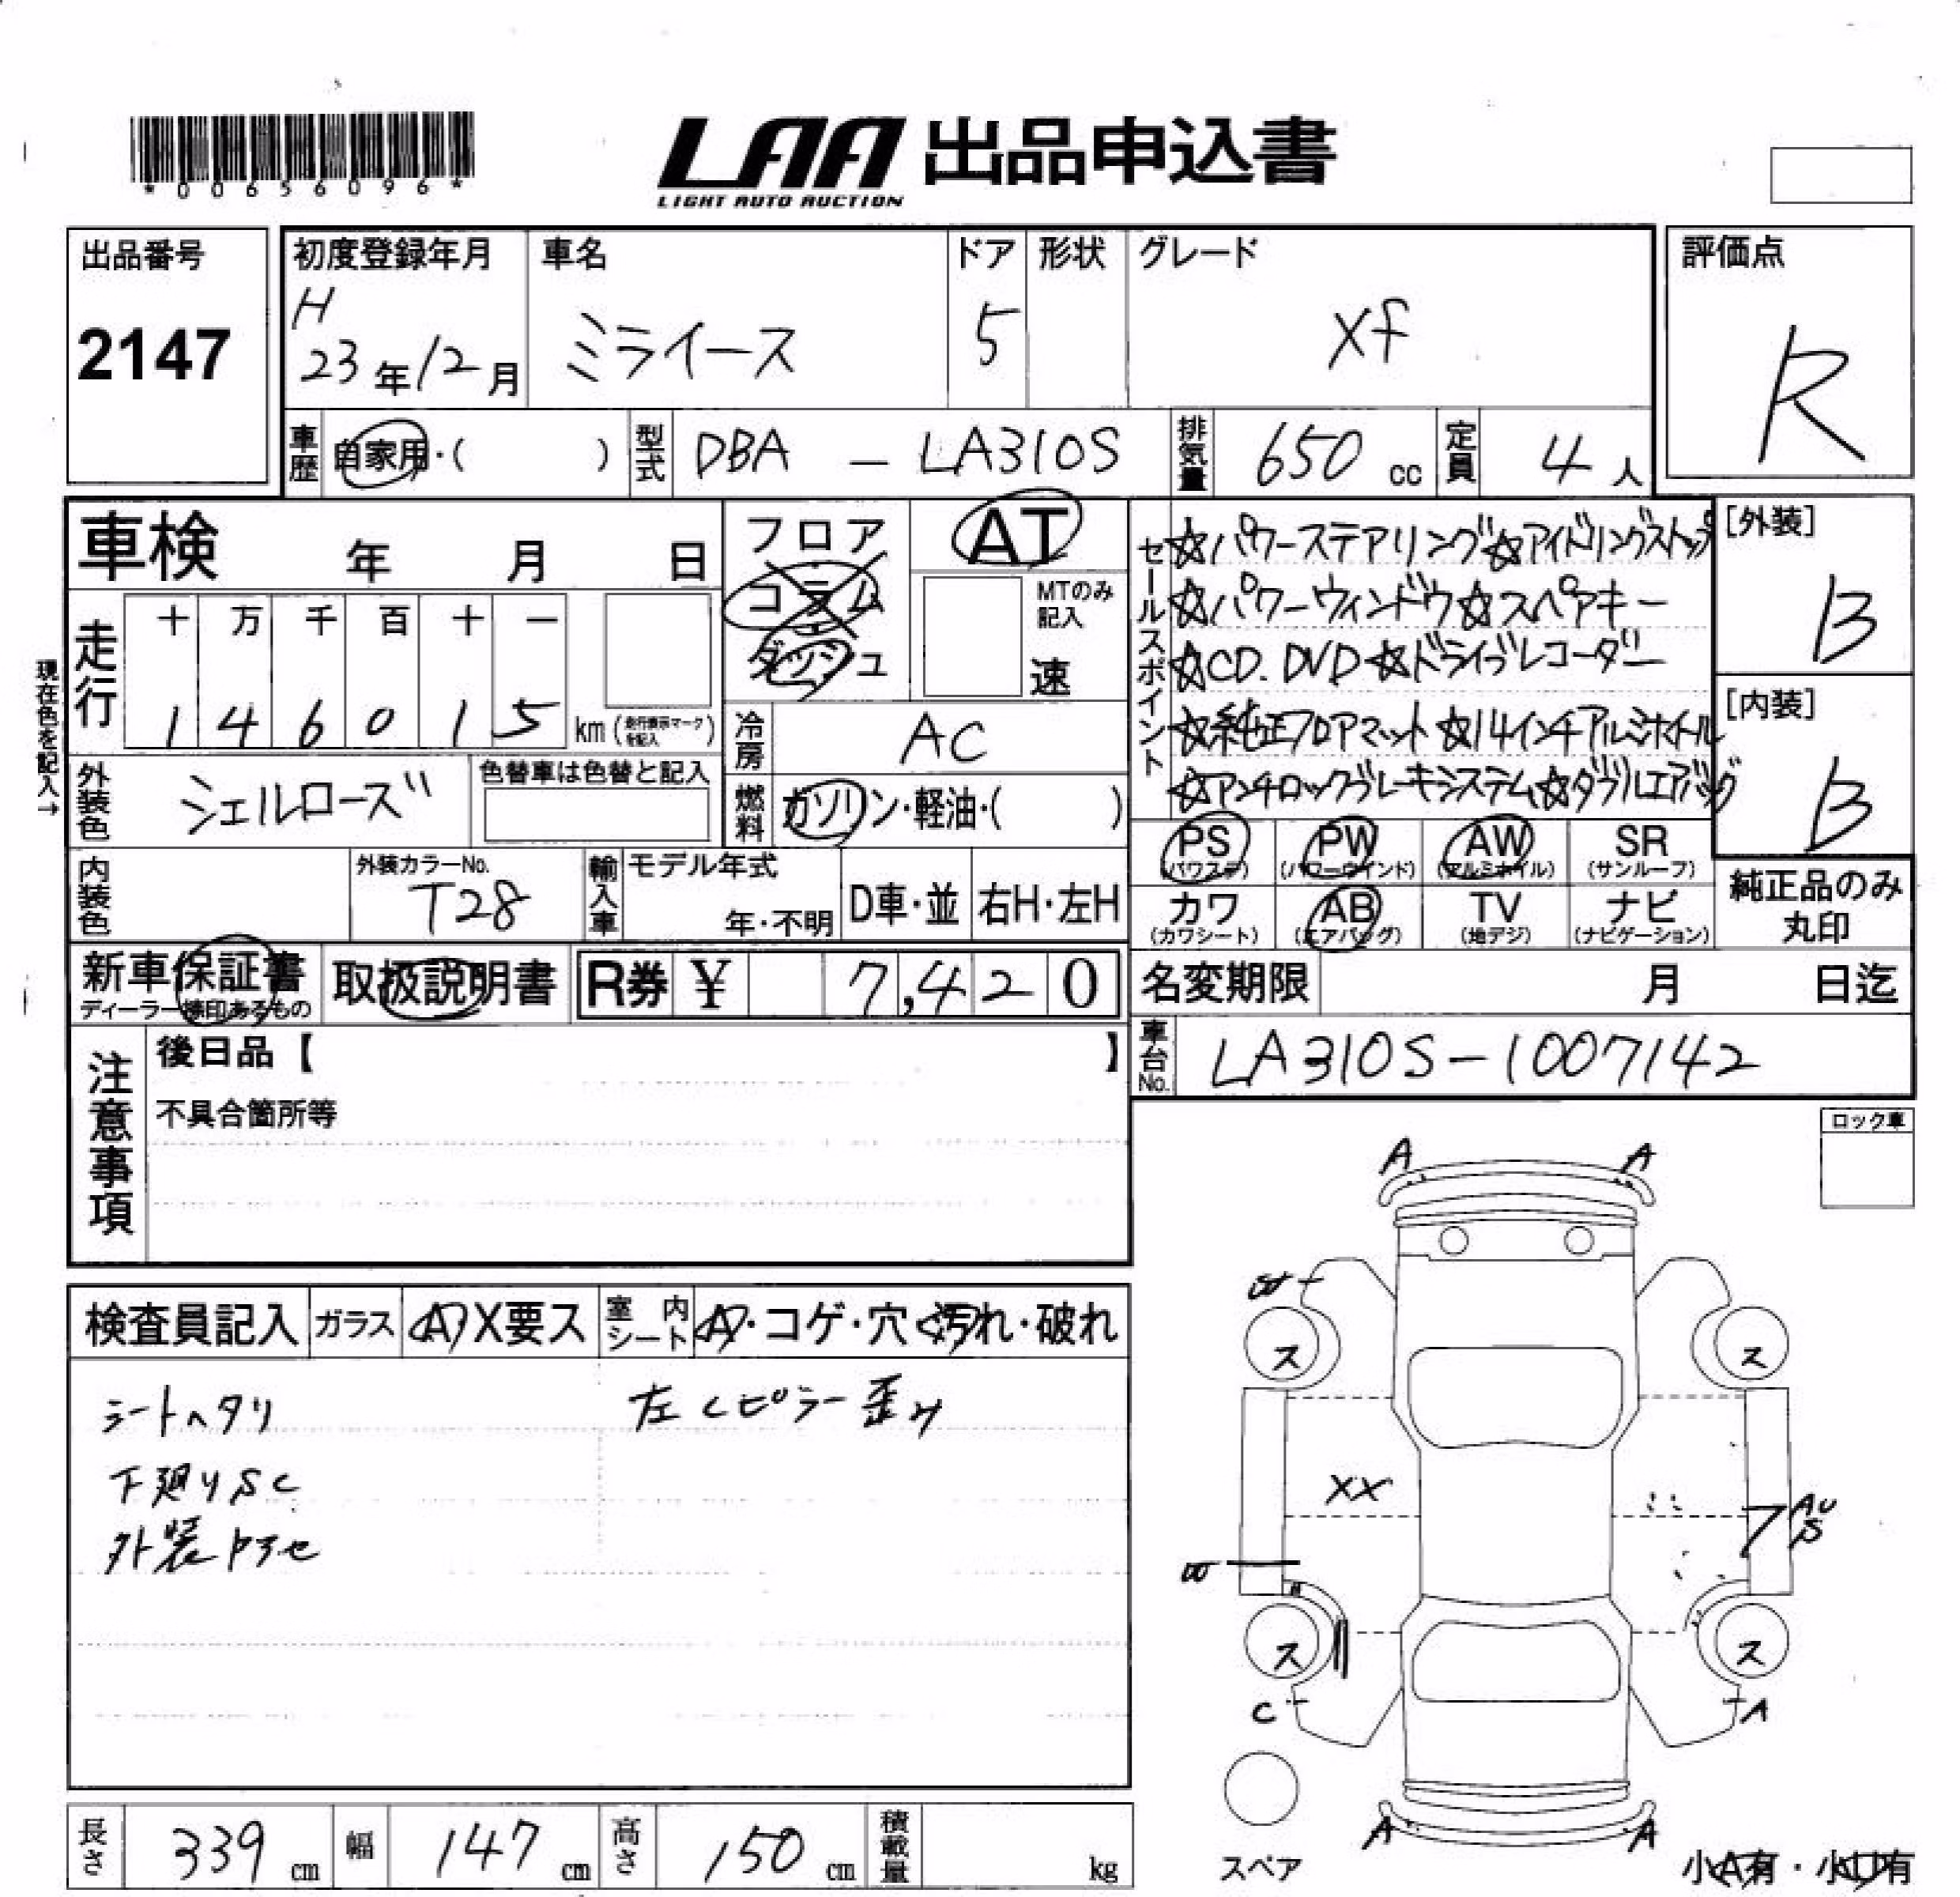 *00656096*
LAA 出品申込書
LIGHT AUTO AUCTION
出品番号
2147
初度登録年月
H
23年12月
車名
ミライース
ドア
5
形状
グレード
Xf
評価点
R
車歴
自家用・( )
型式
DBA - LA310S
排気量
650 cc
定員
4人
車検 年 月 日
フロア
コラム
ダッシュ
AT
MTのみ
記入
速
セールスポイント
☆パワーステアリング☆アイドリングストップ
☆パワーウィンドウ☆スペアキー
☆CD.DVD☆ドライブレコーダー
☆純正フロアマット☆14インチアルミホイール
☆アンチロックブレーキシステム☆ダブルエアバッグ
[外装]
B
[内装]
B
現在色を記入→
走行
十 万 千 百 十 一
1 4 6 0 1 5
km(走行表示マークを記入)
冷房
AC
外装色
シェルローズ
色替車は色替と記入
燃料
ガソリン・軽油・( )
PS
(パワステ)
PW
(パワーウインド)
AW
(アルミホイル)
SR
(サンルーフ)
内装色
外装カラーNo.
T28
輸入車
モデル年式
年・不明
D車・並
右H・左H
カワ
(カワシート)
AB
(エアバッグ)
TV
(地デジ)
ナビ
(ナビゲーション)
純正品のみ
丸印
新車保証書
ディーラー捺印あるもの
取扱説明書
R券 ¥ 7,420
名変期限 月 日迄
車台No.
LA310S-1007142
注意事項
後日品【 】
不具合箇所等
ロック車
検査員記入
ガラス
A X要ス
室内
シート
A・コゲ・穴・汚れ・破れ
シートヘタリ
左Cピラー歪み
下廻りSC
外装ヤケセ
A
A
ス
ス
XX
AU
S
ス
ス
C
A
A
A
スペア
小A有・小U有
長さ
339 cm
幅
147 cm
高さ
150 cm
積載量
kg